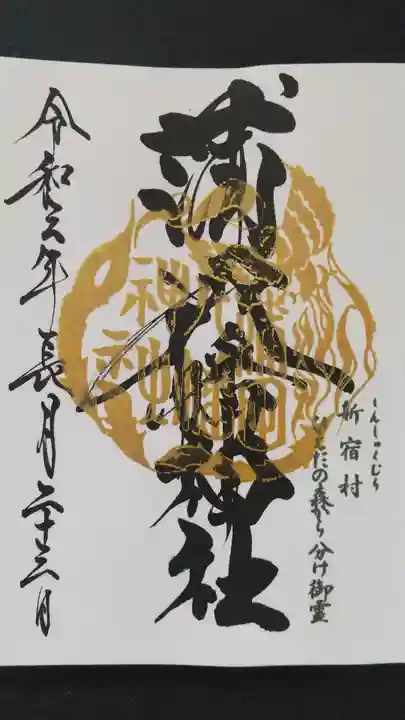 しんしゅくむら
新宿村
ひえだの森から分け御霊
蒲田八幡神社
令和六年長月二十三日